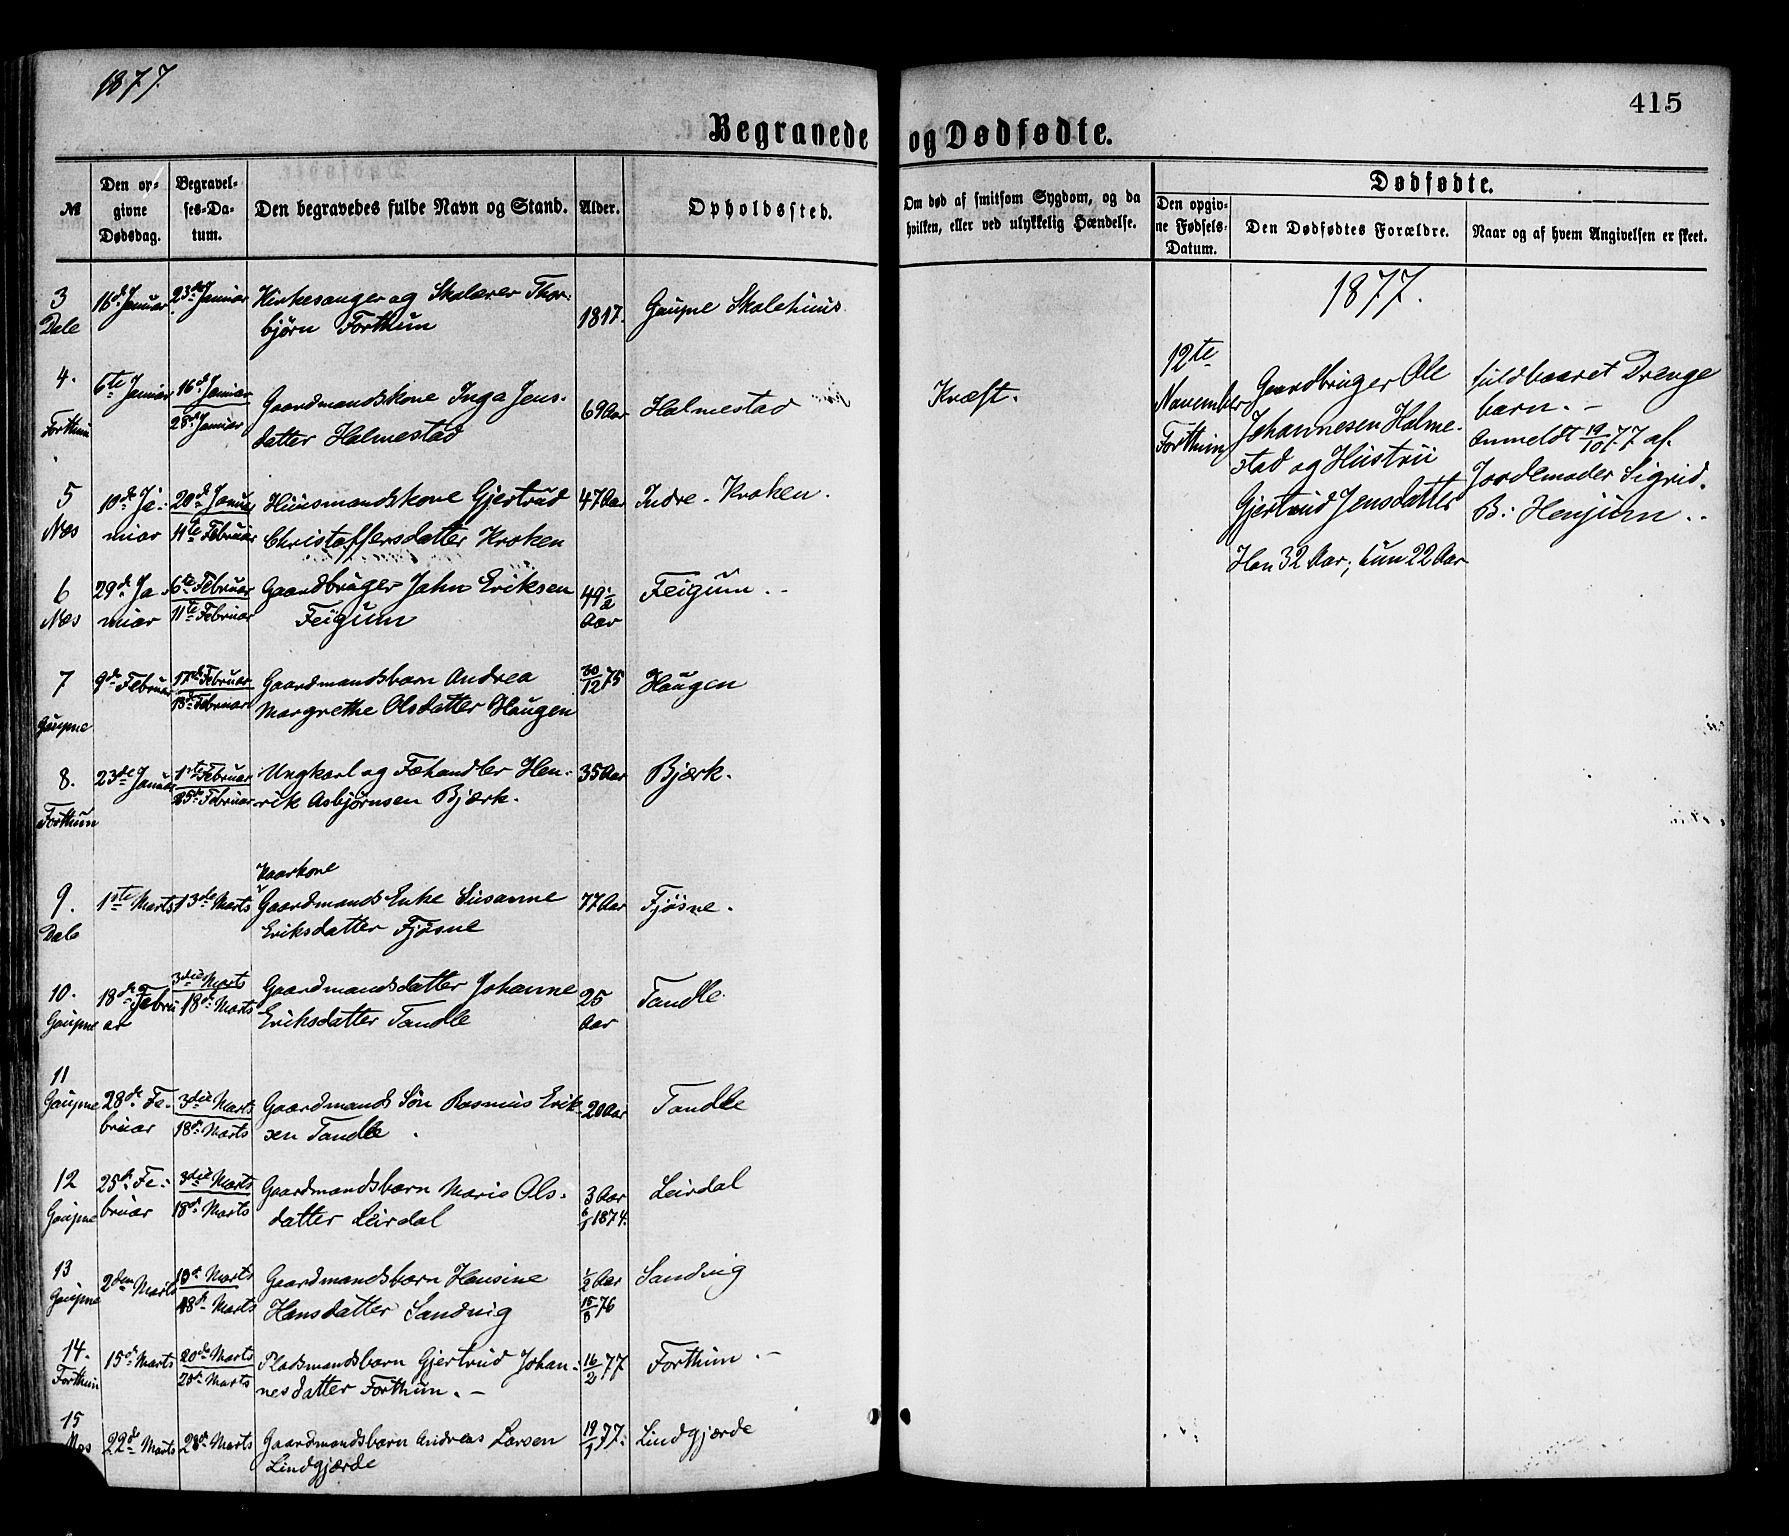 1877.
415
Begravede og Dødfødte.
№
Den opgivne Dødsdag.
Begravelses-Datum.
Den begravedes fulde Navn og Stand.
Alder.
Opholdssted.
Om død af smitsom Sygdom, og da hvilken, eller ved ulykkelig Hændelse.
Dødfødte.
Den opgivne Fødsels-Datum.
Den Dødfødtes Forældre.
Naar og af hvem Angivelsen er skeet.
3 16de Januar 23de Januar Kirkesanger og Skolelærer Thor- 1817. Gaupne Skolehuus.
Dale bjørn Forthun
4. 6te Januar 16de Januar Gaardmandskone Inga Jens- 69 Aar Halmestad Kræft.
Forthun 28de Januar datter Halmestad
5 10de Ja- 20de Januar Huusmandskone Gjertrud 47 Aar Indre-Kroken.
Næs nuar 11te Februar Christoffersdatter Kroken
6 29de Ja- 6te Februar Gaardbruger John Eriksen 49 1/2 Feigum.
Næs nuar 11te Februar Feigum Aar
7 9de Februar 17de Februar Gaardmandsbarn Andrea 30/12 75 Haugen
Gaupne 18de Februar Margrethe Olsdatter Haugen
8. 23de Januar 1ste Februar Ungkarl og Fæhandler Hen- 35 Aar Bjærk.
Forthun 25de Februar rik Asbjørnsen Bjærk.
Kaarkone
9. 1ste Marts 13de Marts Gaardmands Enke Susanne 77 Aar Fjøsne.
Dale Eriksdatter Fjøsne
10. 18de Febru 3die Marts Gaardmandsdatter Johanne 25 Tandle
Gaupne ar 18de Marts Eriksdatter Tandle Aar
11
Gaupne 28de Fe- 3die Marts Gaardmands Søn Rasmus Erik- 20 Aar Tandle
bruar 18de Marts sen Tandle
12 25de Fe- 3die Marts Gaardmandsbarn Maria Ols- 3 Aar Leirdal
Gaupne bruar 18de Marts datter Leirdal 6/1 1874.
13 2den Marts 13de Marts Gaardmandsbarn Hansine 1/2 Aar Sandvig
Gaupne 18de Marts Hansdatter Sandvig 15/8 76
14. 15de Marts 20de Marts Pladsmandsbarn Gjertrud Johan- 16/2 77 Forthun.
Forthun 25de Marts nesdatter Forthun.
15 22de Marts 28de Marts Gaardmandsbarn Andreas Larsen 19/1 77. Lindgjærde
Næs Lindgjærde
1877.
12te
November
Forthun
Gaardbruger Ole
Johannesen Halme-
stad og Hustru
Gjertrud Jensdatter
Han 32 Aar; hun 22 Aar
fuldbaaret Drenge
barn.
Anmeldt 19/10 77 af
Jordemoder Sigrid
B. Henjum.